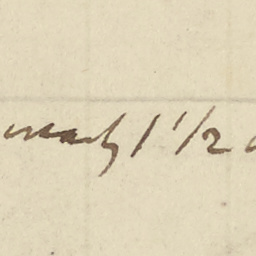 nearly 1 1/2